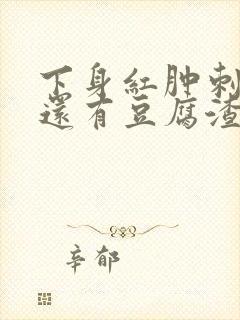 下身紅肿刺
還有豆腐渣
辛郁